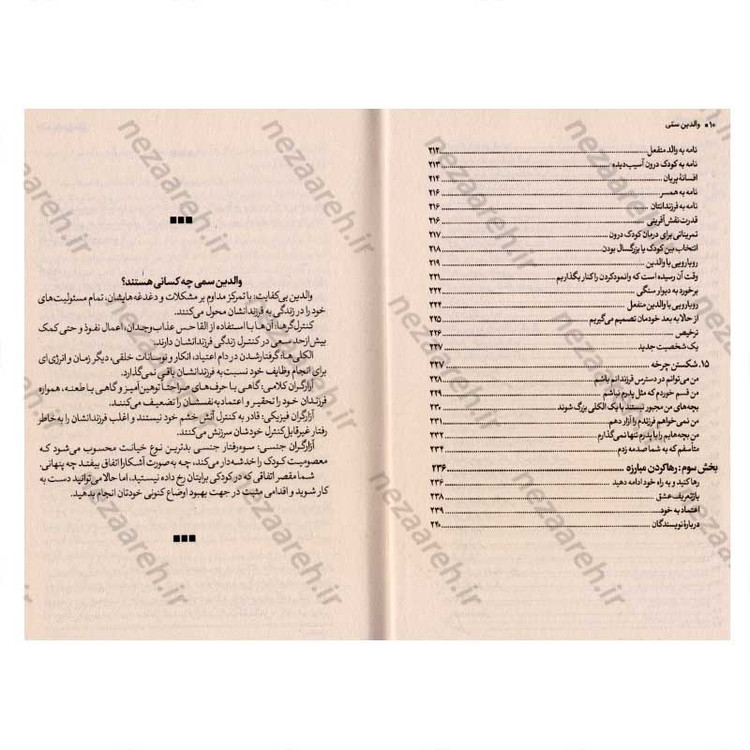 ۱۰ ■ والدین سمّی
نامه به والد منفعل ... ۲۱۲
نامه به کودک درون آسیب‌دیده ... ۲۱۳
افسانهٔ پریان ... ۲۱۴
نامه به همسر ... ۲۱۶
نامه به فرزندانتان ... ۲۱۶
قدرت نقش‌آفرینی ... ۲۱۶
تمریناتی برای درمان کودک درون ... ۲۱۷
انتخاب بین کودک یا بزرگسال بودن ... ۲۱۸
رویارویی با والدین ... ۲۱۹
وقت آن رسیده است که وانمودکردن را کنار بگذاریم ... ۲۲۱
برخورد به دیوار سنگی ... ۲۲۲
رویارویی با والدین منفعل ... ۲۲۴
از حالا به بعد خودمان تصمیم می‌گیریم ... ۲۲۵
ترخیص ... ۲۲۶
یک شخصیت جدید ... ۲۲۷
۱۵. شکستن چرخه ... ۲۲۷
من می‌توانم در دسترس فرزندانم باشم ... ۲۲۸
من قسم خوردم که مثل پدرم نباشم ... ۲۲۹
بچه‌های من مجبور نیستند با یک الکلی بزرگ شوند ... ۲۳۰
من نمی‌خواهم فرزندم را آزار دهم ... ۲۳۱
من بچه‌هایم را با پدرم تنها نمی‌گذارم ... ۲۳۲
متأسفم که به شما صدمه زدم ... ۲۳۴
بخش سوم: رها کردن مبارزه ... ۲۳۶
رها کنید و به راه خود ادامه دهید ... ۲۳۶
بازتعریف عشق ... ۲۳۸
اعتماد به خود ... ۲۳۹
دربارهٔ نویسندگان ... ۲۴۰
■■■
والدین سمی چه کسانی هستند؟
والدین بی‌کفایت: با تمرکز مداوم بر مشکلات و دغدغه‌هایشان، تمام مسئولیت‌های
خود را در زندگی به فرزندانشان محول می‌کنند.
کنترل‌گرها: آن‌ها با استفاده از القا حس عذاب وجدان، اعمال نفوذ و حتی کمک
بیش‌ازحد سعی در کنترل زندگی فرزندانشان دارند.
الکلی‌ها: گرفتارشدن در دام اعتیاد، انکار و نوسانات خلقی، دیگر زمان و انرژی‌ای
برای انجام وظایف خود نسبت به فرزندانشان باقی نمی‌گذارد.
آزارگران کلامی: گاهی با حرف‌های صراحتاً توهین‌آمیز و گاهی با طعنه، همواره
فرزندان خود را تحقیر و اعتمادبه‌نفسشان را تضعیف می‌کنند.
آزارگران فیزیکی: قادر به کنترل آتش خشم خود نیستند و اغلب فرزندانشان را به‌خاطر
رفتار غیرقابل‌کنترل خودشان سرزنش می‌کنند.
آزارگران جنسی: سوءرفتار جنسی بدترین نوع خیانت محسوب می‌شود که
معصومیت کودک را خدشه‌دار می‌کند، چه به‌صورت آشکارا اتفاق بیفتد چه پنهانی.
شما مقصر اتفاقی که در کودکی برایتان رخ داده نیستید، اما حالا می‌توانید دست به
کار شوید و اقدامی مثبت در جهت بهبود اوضاع کنونی خودتان انجام بدهید.
■■■
nezaareh.ir
nezaareh.ir
nezaareh.ir
nezaareh.ir
nezaareh.ir
nezaareh.ir